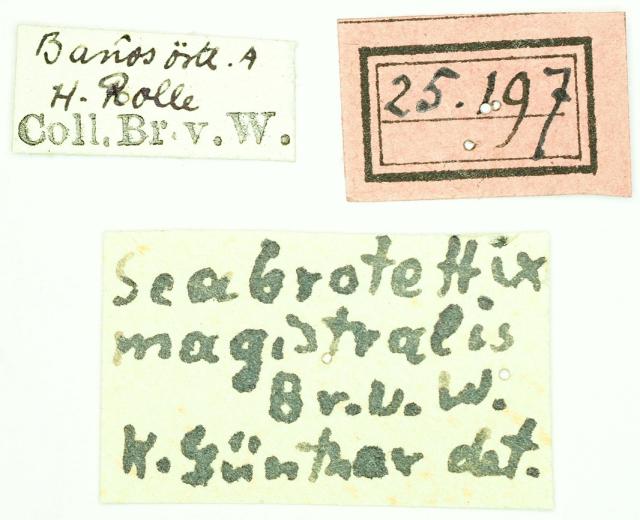 Baños östl. A
H. Rolle
Coll. Br. v. W.
25.197
Scabrotettix
magistralis
Br. v. W.
K. Günther det.